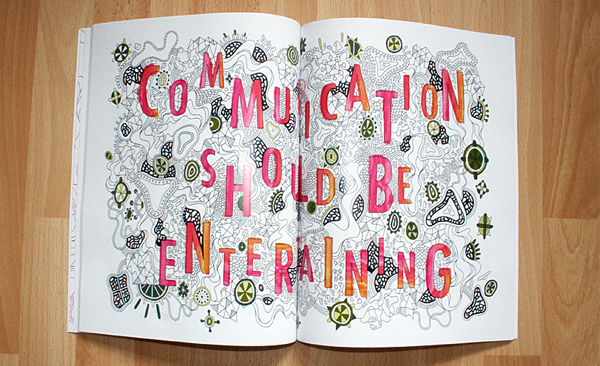 COMMUICATION
SHOULD BE
ENTERAINING